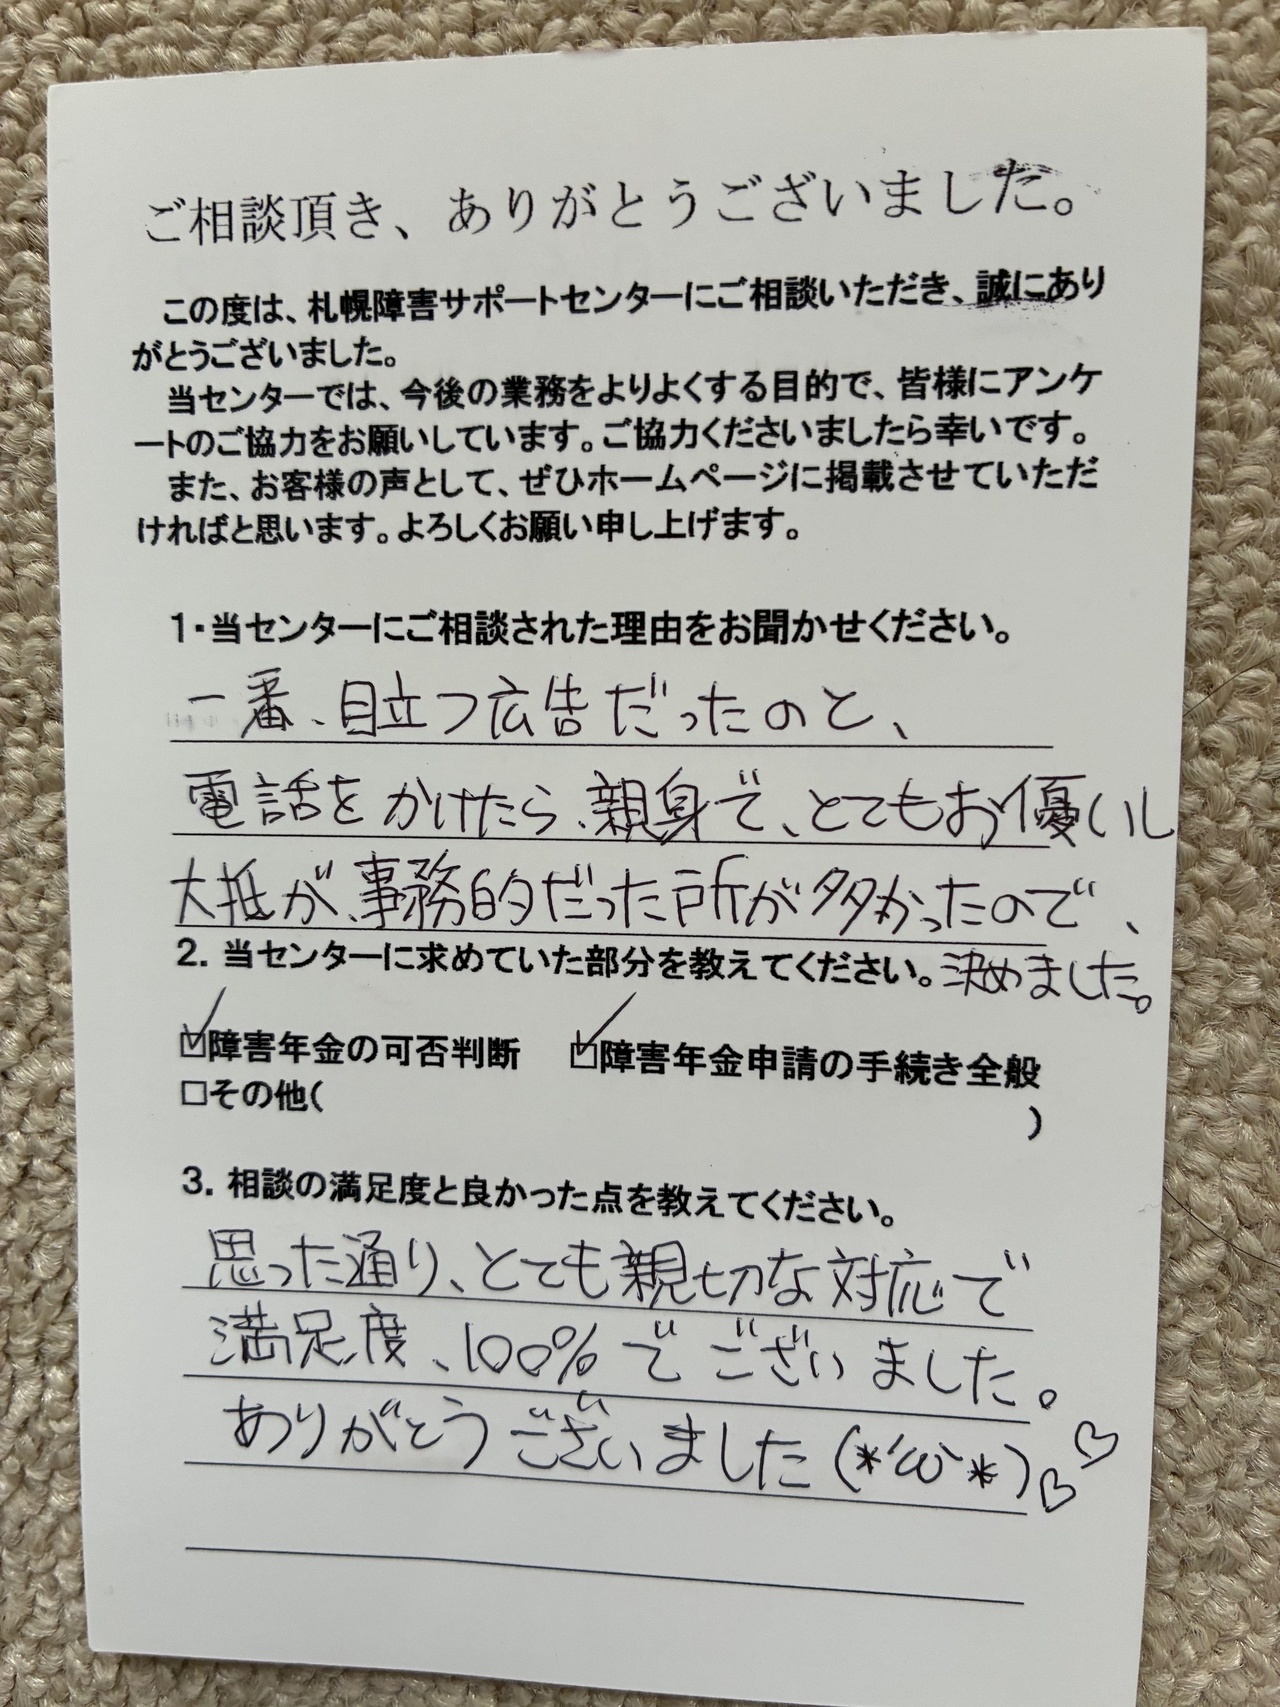 ご相談頂き、ありがとうございました。
この度は、札幌障害サポートセンターにご相談いただき、誠にあり
がとうございました。
当センターでは、今後の業務をよりよくする目的で、皆様にアンケ
ートのご協力をお願いしています。ご協力くださいましたら幸いです。
また、お客様の声として、ぜひホームページに掲載させていただ
ければと思います。よろしくお願い申し上げます。
1・当センターにご相談された理由をお聞かせください。
一番、目立つ広告だったのと、
電話をかけたら、親身で、とてもお優いし
大抵が、事務的だった所が多かったので、
決めました。
2. 当センターに求めていた部分を教えてください。
☑障害年金の可否判断 ☑障害年金申請の手続き全般
□その他( )
3. 相談の満足度と良かった点を教えてください。
思った通り、とても親切な対応で
満足度、100%でございました。
ありがとうございました(*'ω`*)♡♡